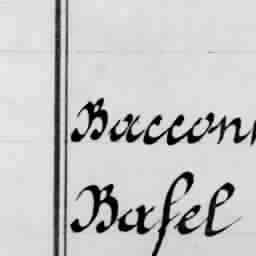 Baccon
Basel